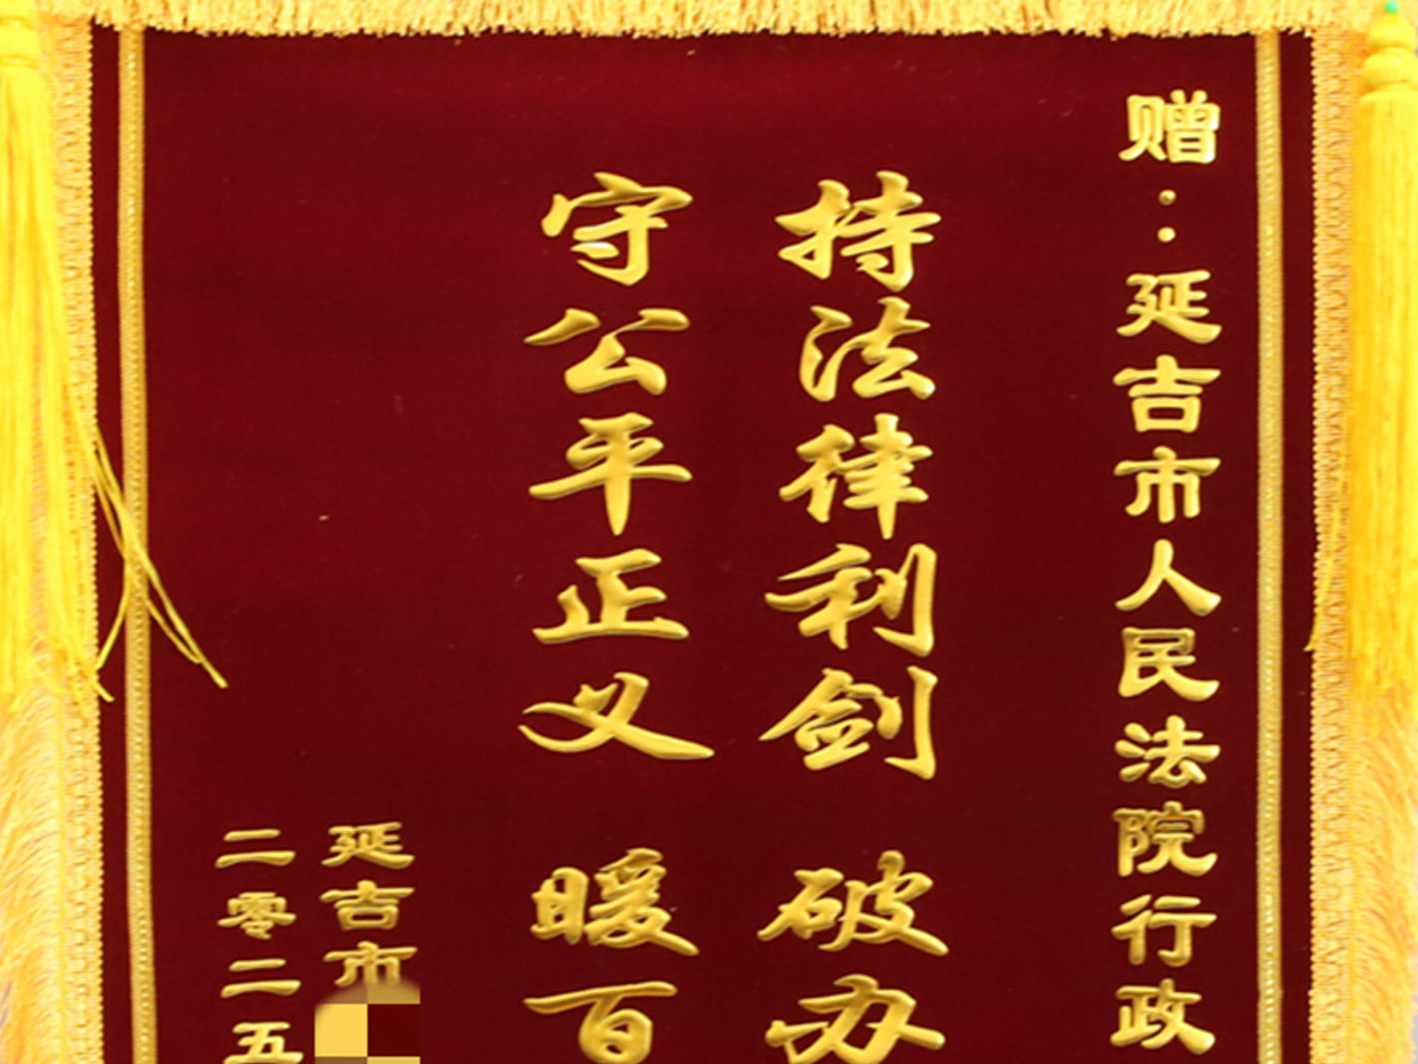 赠：延吉市人民法院行政
持法律利剑 破办
守公平正义 暖百
延吉市
二零二五